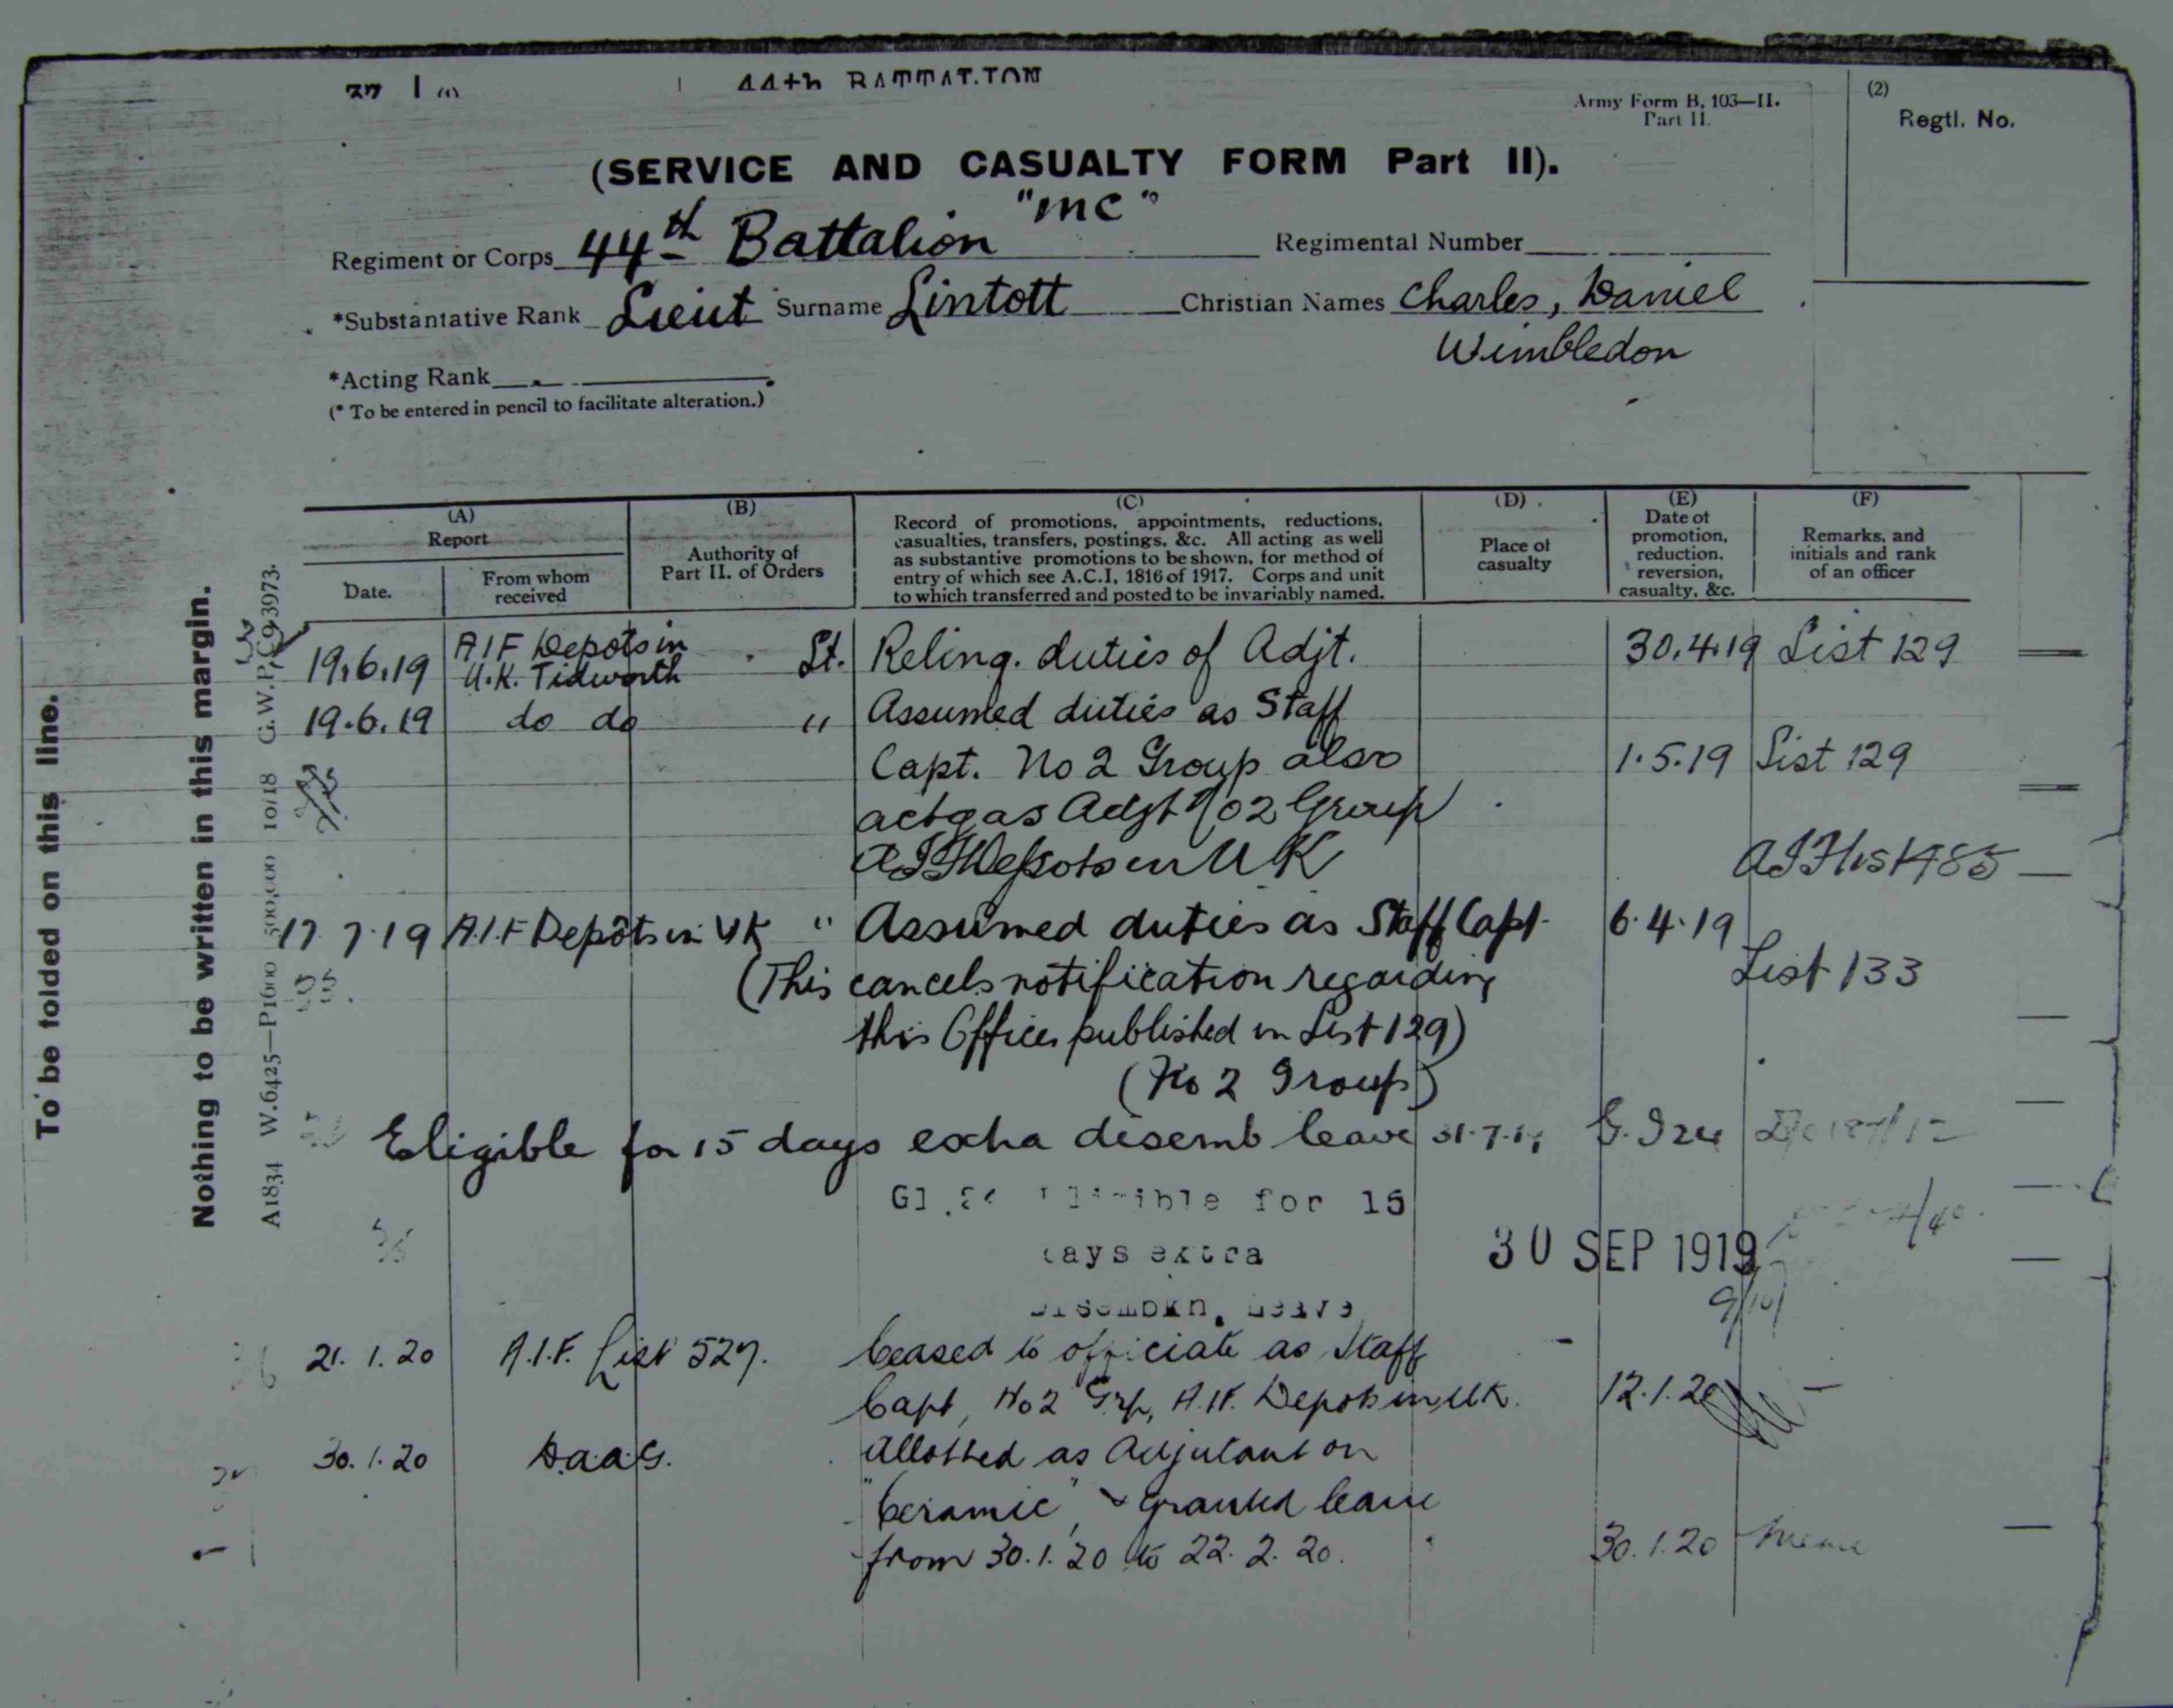 44th BATTALION
Army Form B. 103—II.
Part II.
(2)
Regtl. No.
(SERVICE AND CASUALTY FORM Part II).
"MC"
Regiment or Corps 44th Battalion Regimental Number
*Substantative Rank Lieut Surname Lintott Christian Names Charles, Daniel
Wimbledon
*Acting Rank
(* To be entered in pencil to facilitate alteration.)
To be folded on this line.
Nothing to be written in this margin.
A1834 W.6425—P1600 500,000 10/18 G.W.P.
(A)
Report
Date.
From whom
received
(B)
Authority of
Part II. of Orders
(C)
Record of promotions, appointments, reductions,
casualties, transfers, postings, &c. All acting as well
as substantive promotions to be shown, for method of
entry of which see A.C.I. 1816 of 1917. Corps and unit
to which transferred and posted to be invariably named.
(D)
Place of
casualty
(E)
Date of
promotion,
reduction,
reversion,
casualty, &c.
(F)
Remarks, and
initials and rank
of an officer
19.6.19 A.I.F Depots in U.K. Tidworth St. Relinq. duties of Adjt. 30.4.19 List 129
19.6.19 do do " Assumed duties as Staff
Capt. No 2 Group also 1.5.19 List 129
actg as Adjt No 2 Group
AIF Depots in UK AIF List 485
17.7.19 A.I.F Depôts in UK " Assumed duties as Staff Capt. 6.4.19
(This cancels notification regarding List 133
this Officer published in List 129)
(No 2 Group)
Eligible for 15 days extra disemb leave 31.7.19
Eligible for 15
days extra 30 SEP 1919
Disembkn. Leave
21.1.20 A.I.F. List 527. Ceased to officiate as Staff
Capt, No 2 Grp, A.I.F. Depots in U.K. 12.1.20
30.1.20 D.A.A.G. Allotted as Adjutant on
"Ceramic", & granted leave
from 30.1.20 to 22.2.20. 30.1.20 Memo